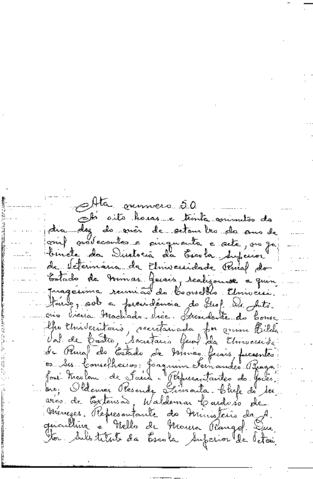 Ata numero 50
Ás oito horas e trinta minutos do
dia dez do mês de setembro do ano de
mil novecentos e cinquenta e sete, no ga
binete da Diretoria da Escola Superior
de Veterinária da Universidade Rural do
Estado de Minas Gerais, realizou-se a quin
quagesima reunião do Conselho Universi
tário, sob a presidência do Prof. Dr. Antô
nio Vieira Machado, Vice-Presidente do Conse
lho Universitario, secretariada por mim
de Castro, Secretário Geral da Universida
de Rural do Estado de Minas Gerais, presentes
os Srs Conselheiros: Joaquim Fernandes Braga,
José de Faria, Representantes do Gover
no, Ildeneu Resende, Chefe do Ser
viço de Extensão, Waldemar Cardoso de
Menezes, Representante do Ministério da A
gricultura e Mello de Moura Rangel, Dire
tor Substituto da Escola Superior de Veteri